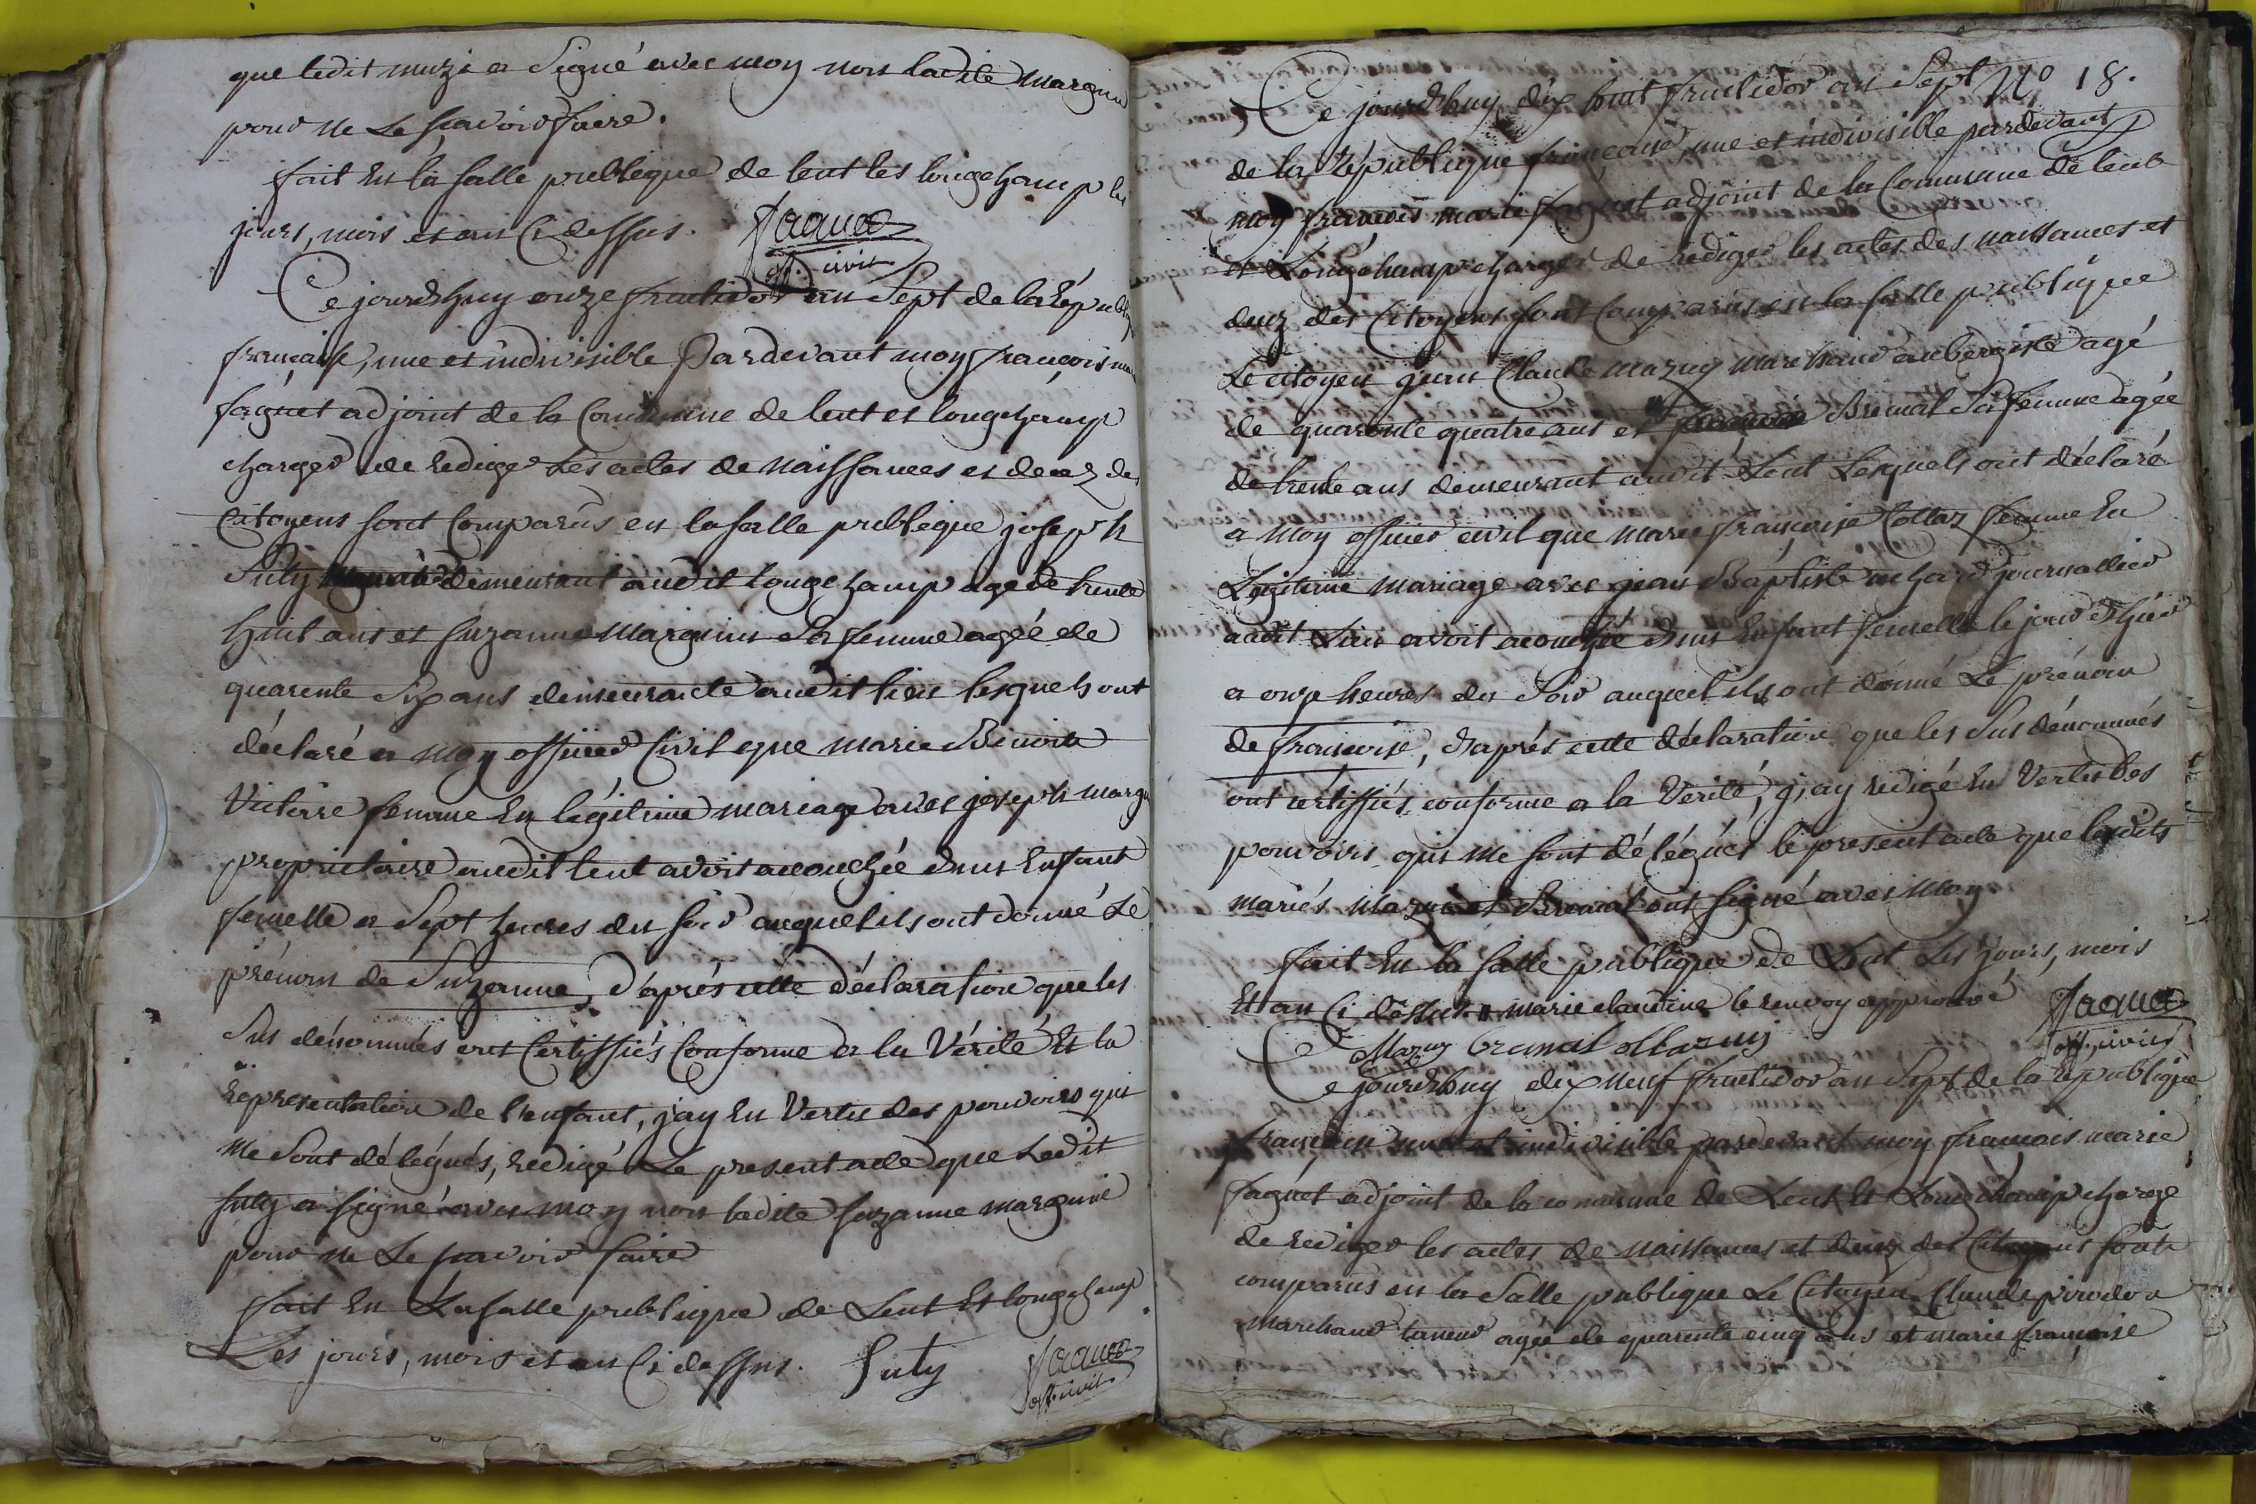 que ledit muzi a Signé avec moy non ladite Margui
pour ne Le sçavoir faire.
fait En la salle publique de lent les longchamp les
jours, mois et an Ci dessus. Faguet
off. civil
Ce jourdhuy onze fructidor an Sept de la Répub
française, une et indivisible Pardevant moy françois ma
faguet adjoint de la Commune de lent et longchamp
charger de rediger Les actes de Naissances et decez des
Citoyens sont Comparus en la salle publique joseph
Suty demeurant audit longchamp agé de trente
huit ans et suzanne Marguin Sa femme agée de
quarente Six ans demeurante audit lieu lesquels ont
déclaré a moy officier Civil que marie Benoite
Victoire femme En légitime mariage avec joseph margu
proprietaire audit lent avoit acouchée d'un Enfant
femelle a Sept heures du soir auquel ils ont donné Le
prénom de Suzanne, d'aprés cette déclaration que les
Sus dénommés ont Certiffiés Conforme a la Vérité Et la
représentation de l'enfant, j'ay En Vertu des pouvoirs qui
me Sont délégués, redigé Le present acte que Ledit
suty a signé avec moy non ladite suzanne Marguin
pour ne Le sçavoir faire
fait En La salle publique de Lent Et longchamp
Les jours, mois et an Ci dessus. Suty Faguet
off. civil
N° 18.
Ce jourdhuy dix huit fructidor an Sept
de la République française, une et indivisible pardevant
moy françois marie faguet adjoint de la Commune de lent
et Longchamp charger de rédiger les actes des naissances et
decez des Citoyens sont Comparus en la salle publique
Le citoyen jean Claude Mazuy Marchand aubergiste agé
de quarente quatre ans et Bremal Sa femme agée
de trente ans demeurant audit Lent Lesquels ont déclaré
a moy officier civil que Marie françoise Collaz femme En
Légitime mariage avec jean Baptiste journallier
audit Lieu avoit acouchée d'un Enfant femelle le jour d'hier
a onze heures du Soir auquel ils ont donné Le prénom
de françoise, d'aprés cette déclaration que les Sus dénommés
ont certiffiés conforme a la Vérité, j'ay redigé En Vertu des
pouvoirs qui me sont délégués le present acte que lesdits
mariés Mazuy et Bremal ont signé avec moy
fait En la salle publique de Lent Les jours, mois
Et an Ci dessus marie claudine le renvoy approuvé Faguet
off. civil
Mazuy bremal Mazuy
Ce jourdhuy dix neuf fructidor an Sept de la république
française une et indivisible pardevant moy françois marie
faguet adjoint de la commune de Lent Et Longchamp charge
de rediger les actes de naissances et decez des Citoyens sont
comparus en la Salle publique Le Citoyen Claude pirodon
Marchand taneur agée de quarente cinq ans et marie françoise